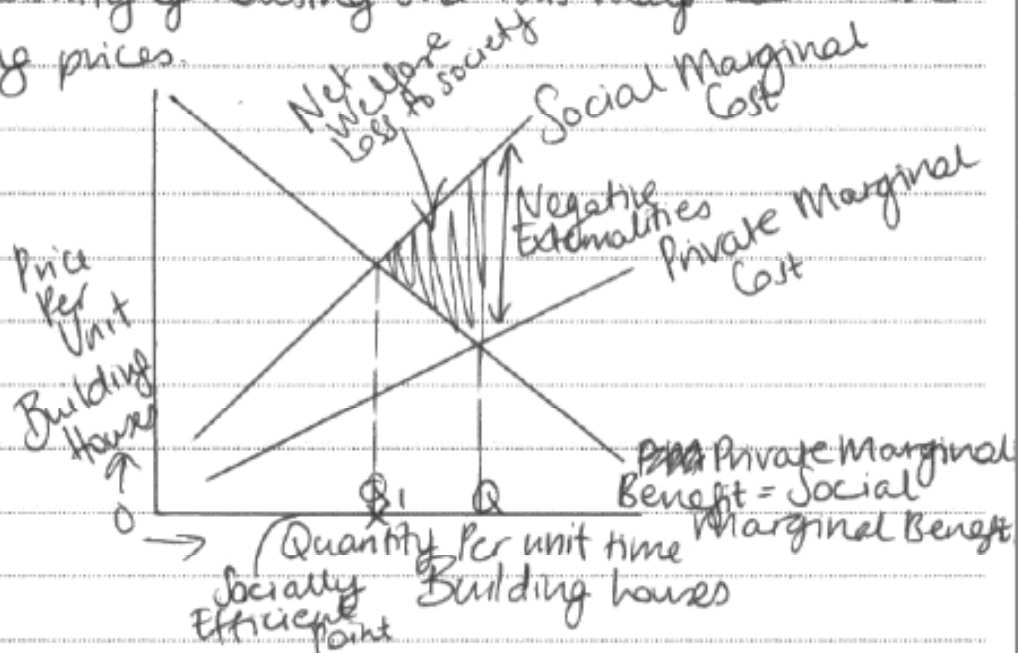 prices.
Net
Welfare
Loss to society
Social Marginal
Cost
Negative
Externalities
Private Marginal
Cost
Price
Per
Unit
Building
Houses
0
Q1
Q
Private Marginal
Benefit = Social
Marginal Benefit
Quantity Per unit time
Building houses
Socially
Efficient
Point